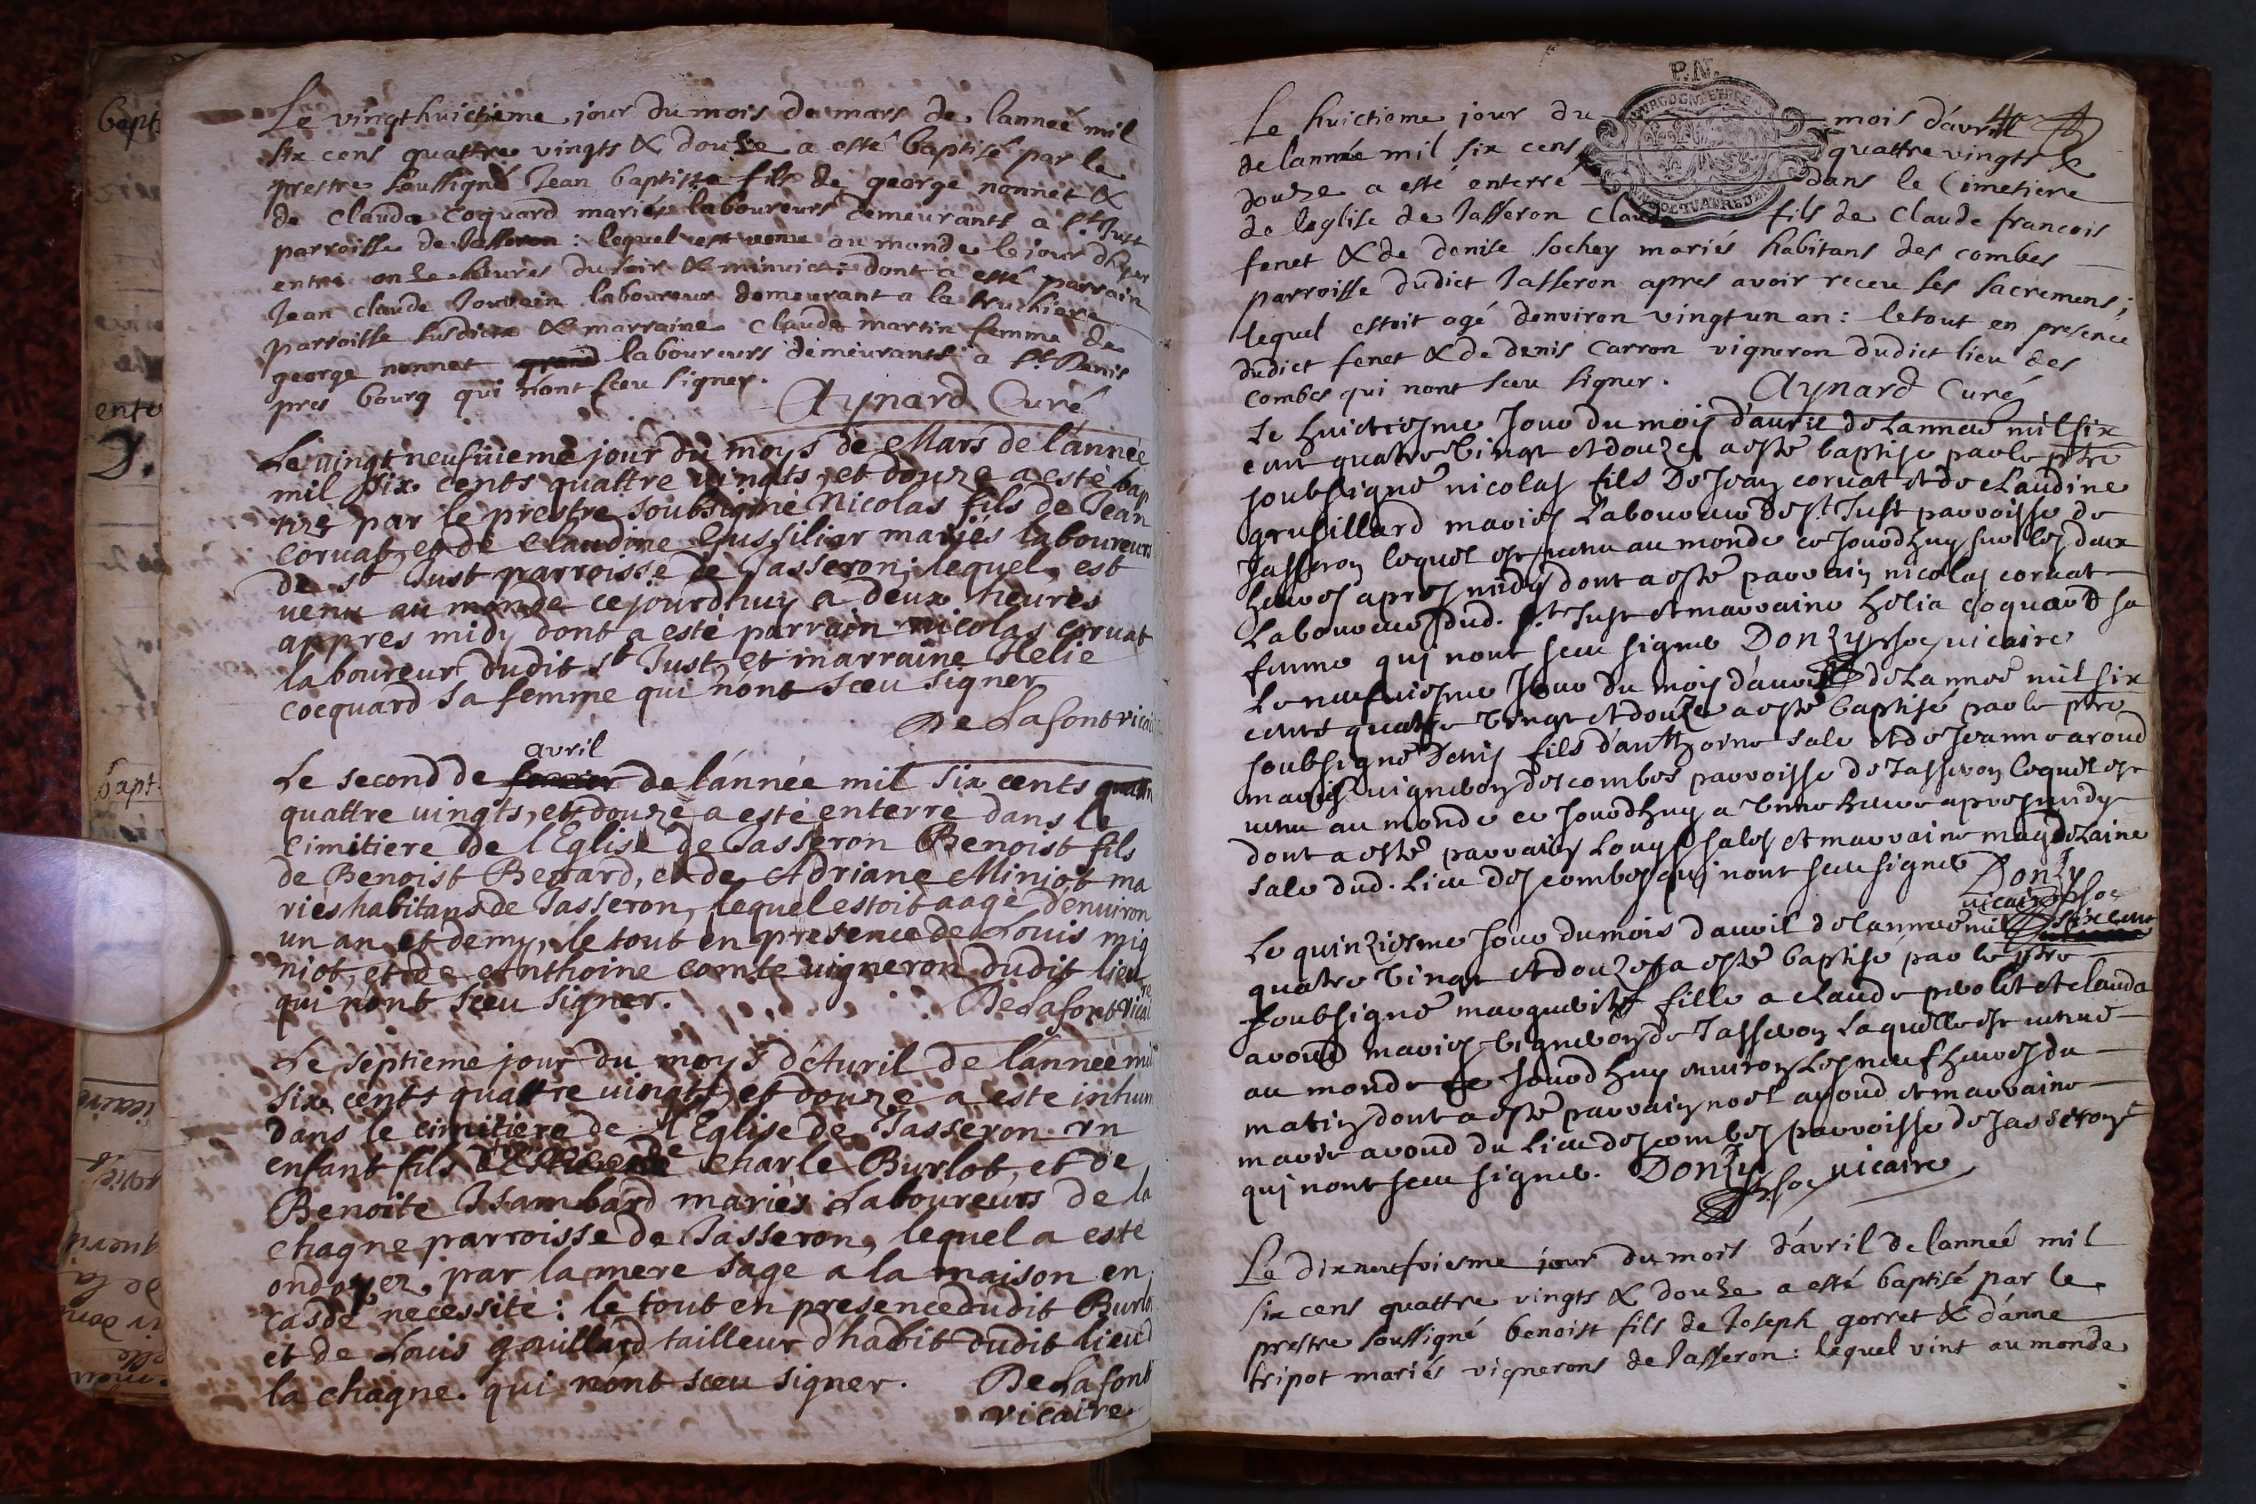 bapt
Le vingt huictieme jour du mois de mars de lannee mil
six cens quattre vingts & douze a esté baptisé par le
prestre soussigné Jean baptiste fils de george nonnet &
de Clauda Coquard mariés laboureurs demeurants a St. Just
parroisse de Jasseron : lequel est venu au monde le jour d'hyer
entre onze heures du soir & minuict : dont a esté parrain
Jean claude Jouvain laboureur demeurant a la truchiere
parroisse susdicte & marraine Clauda martin femme de
george nonnet grand laboureurs demeurants a St. Denis
pres bourg qui n'ont sceu signer.
Aynard Curé
Le uingt neufuieme jour du moys de Mars de l'année
mil six cents quattre uingts, et douze a esté bap
tizé par le prestre soubsigné Nicolas fils de Jean
Coruat, et de Claudine Gussilier mariés laboureurs
de St Just parroisse de Jasseron, lequel est
uenu au monde cejourdhuy a deux heures
appres midy dont a esté parrain Nicolas Coruat
laboureur dudit St Just, et marraine Helie
Cocquard sa femme qui n'ont sceu signer
De Lafont vicai
avril
Le second de de l'année mil six cents
quattre uingts, et douze a esté enterré dans le
cimitiere de l'Eglise de Jasseron Benoist fils
de Benoist Berard, et de Adriane Miniot ma
riés habitans de Jasseron, lequel estoit aagé d'enuiron
un an et demy, le tout en presence de Louis mig
niot, et de Anthoine Comte uigneron dudit lieu
qui n'ont sceu signer.
De Lafont vicai
Le septieme jour du moys d'Auril de l'année mil
six cents quattre uingts, et douze a esté inhum
dans le cimitiere de l'Eglise de Jasseron vn
enfant fils de Charle Burlot, et de
Benoite Isambard mariés Laboureurs de la
chagne parroisse de Jasseron, lequel a esté
ondoyez par la mere sage a la maison en
cas de necessité : le tout en presence dudit Burlo
et de Louis gauillard tailleur d'habit dudit lieu d
la chagne. qui n'ont sceu signer.
De Lafont
vicaire
P.N.
Le huictieme jour du mois d'avril
de lannée mil six cens quattre vingts &
douze a esté enterré dans le Cimetiere
de leglise de Jasseron Claude fils de Claude francois
fenet & de denise sochey mariés habitans des combes
parroisse dudict Jasseron apres avoir receu ses sacremens ;
lequel estoit agé denviron vingt un an : le tout en presence
dudict fenet & de denis Carron vigneron dudict lieu des
combes qui nont sceu signer.
Aynard Curé
Le huictiesme Jour du mois d'auril de Lannee mil six
cent quatre Vingt et douze a esté baptisé par le ptre
soubsigné nicolas fils De Jean coruat et de Claudine
grusillard maries Laboureur de St. Just parroisse de
Jasseron lequel est venu au monde ce Jourdhuy sur les deux
heures apres midy dont a esté parrain nicolas coruat
Laboureur dud. St. Just et marraine Helia coquard sa
femme qui n'ont sceu signer Donzy vicaire
Le neufuiesme Jour Du mois d'auril de Lannee mil six
cents quatre Vingt et douze a esté baptisé par le ptre
soubsigné Denis fils d'anthoine sale et de Jeanne aroud
maries uigneron des combes parroisse de Jasseron lequel est
uenu au monde ce Jourdhuy a Vnne heure apres midy
dont a esté parrain Louys sales et marraine magdelaine
sale dud. Lieu des combes qui n'ont sceu signer Donzy
vicaire
Le quinziesme Jour du mois dauril de Lannee mil six cent
quatre Vingt et douze a esté baptisé par le ptre
soubsigné marguerite fille a claude et clauda
aroud maries Vigneron de Jasseron laquelle est uenue
au monde ce Jourdhuy enuiron les neuf heures du
matin dont a esté parrain noel aroud et marraine
marie aroud du Lieu des combes parroisse de Jasseron
qui n'ont sceu signer. Donzy vicaire
Le dixneufviesme jour du mois d'avril de lanneé mil
six cens quattre vingts & douze a esté baptisé par le
prestre soussigné benoist fils de Joseph gorret & d'anne
tripot mariés vignerons de Jasseron : lequel vint au monde